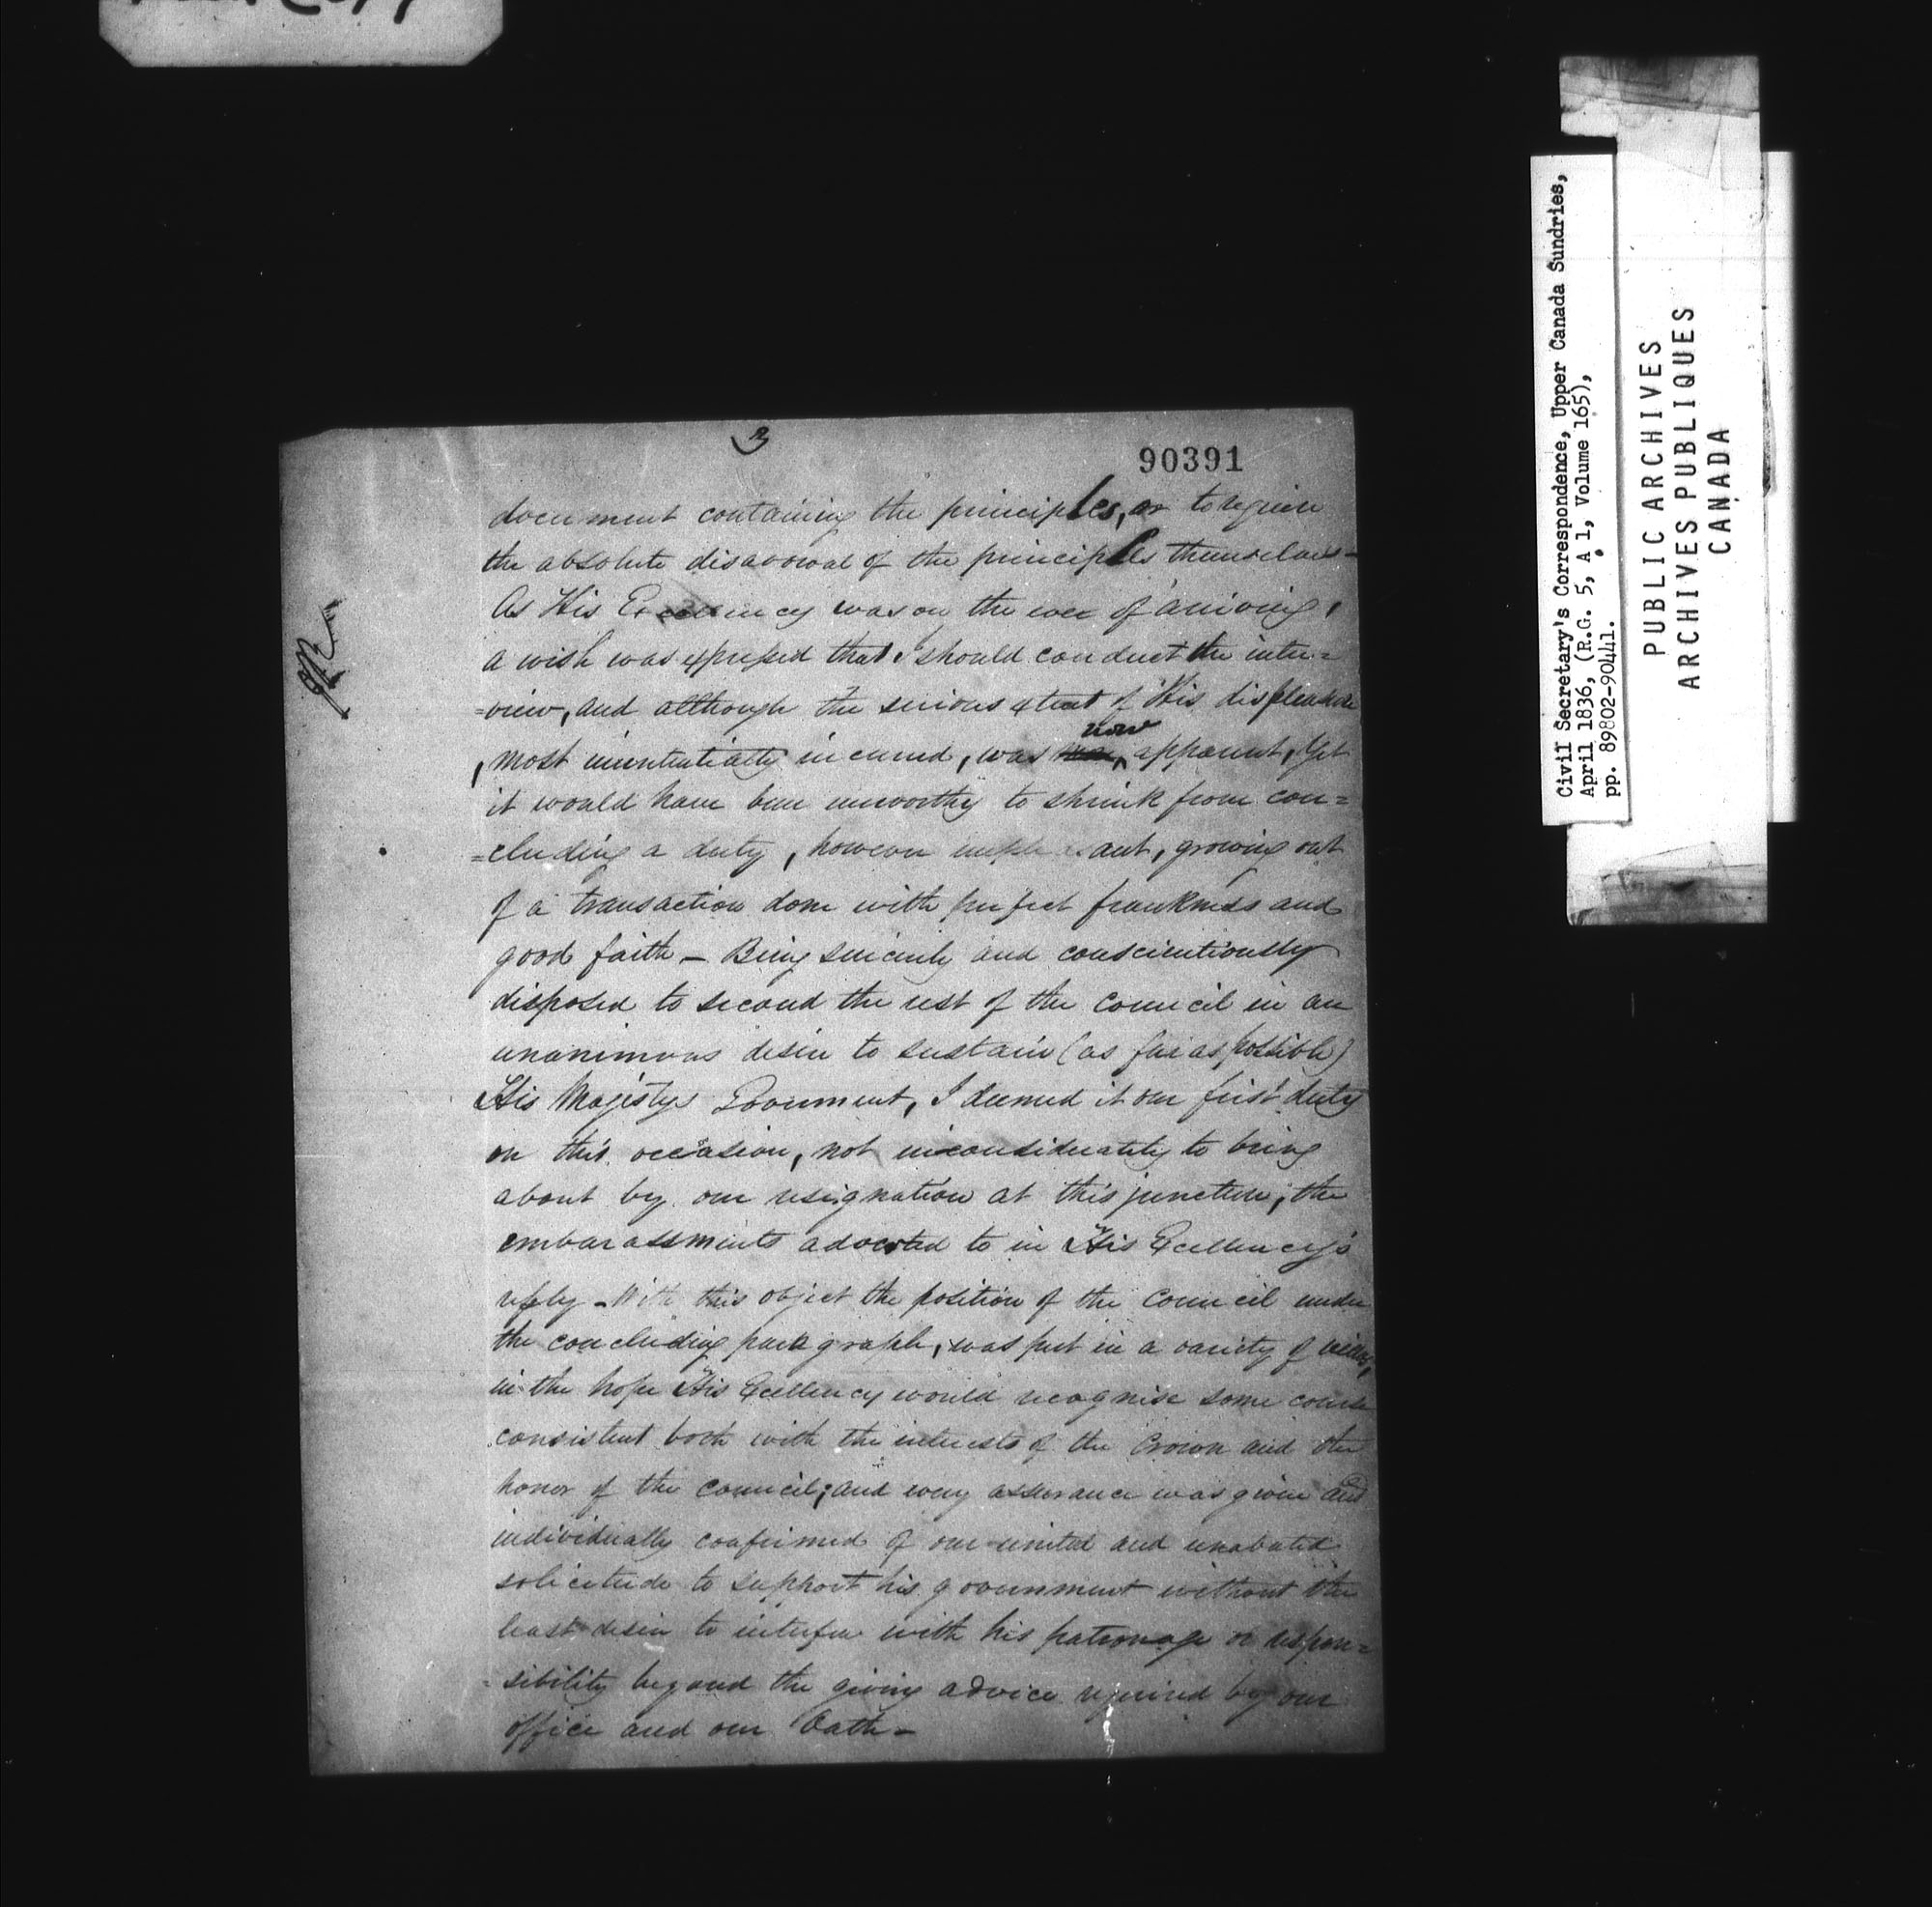 3
90391
document containing the principles, or to require
the absolute disavowal of the principles themselves-
As His Excellency was on the eve of arriving,
a wish was expressed that I should conduct the inter=
=view, and although the serious extent of His displeasure
, most unintentially incurred, was now apparent, yet
it would have been unworthy to shrink from con=
=cluding a duty, however unpleasant, growing out
of a transaction done with perfect frankness and
good faith - Being sincerely and conscientiously
disposed to second the rest of the Council in an
unanimous desire to sustain (as far as possible)
His Majestys Government, I deemed it our first duty
on this occasion, not inconsiderately to bring
about by our resignation at this juncture, the
embarassments adverted to in His Excellency's
reply - With this object the position of the Council under
the concluding paragraph, was put in a variety of views,
in the hope His Excellency would recognise some course
consistent both with the interests of the Crown and the
honor of the Council; and every assurance was given and
individually confirmed of our united and unabated
solicitude to support his government without the
least desire to interfere with his patronage or respon=
=sibility beyond the giving advice required by our
office and our Oath -
Civil Secretary's Correspondence, Upper Canada Sundries,
April 1836, (R.G. 5, A 1, Volume 165),
pp. 89802-90441.
PUBLIC ARCHIVES
ARCHIVES PUBLIQUES
CANADA